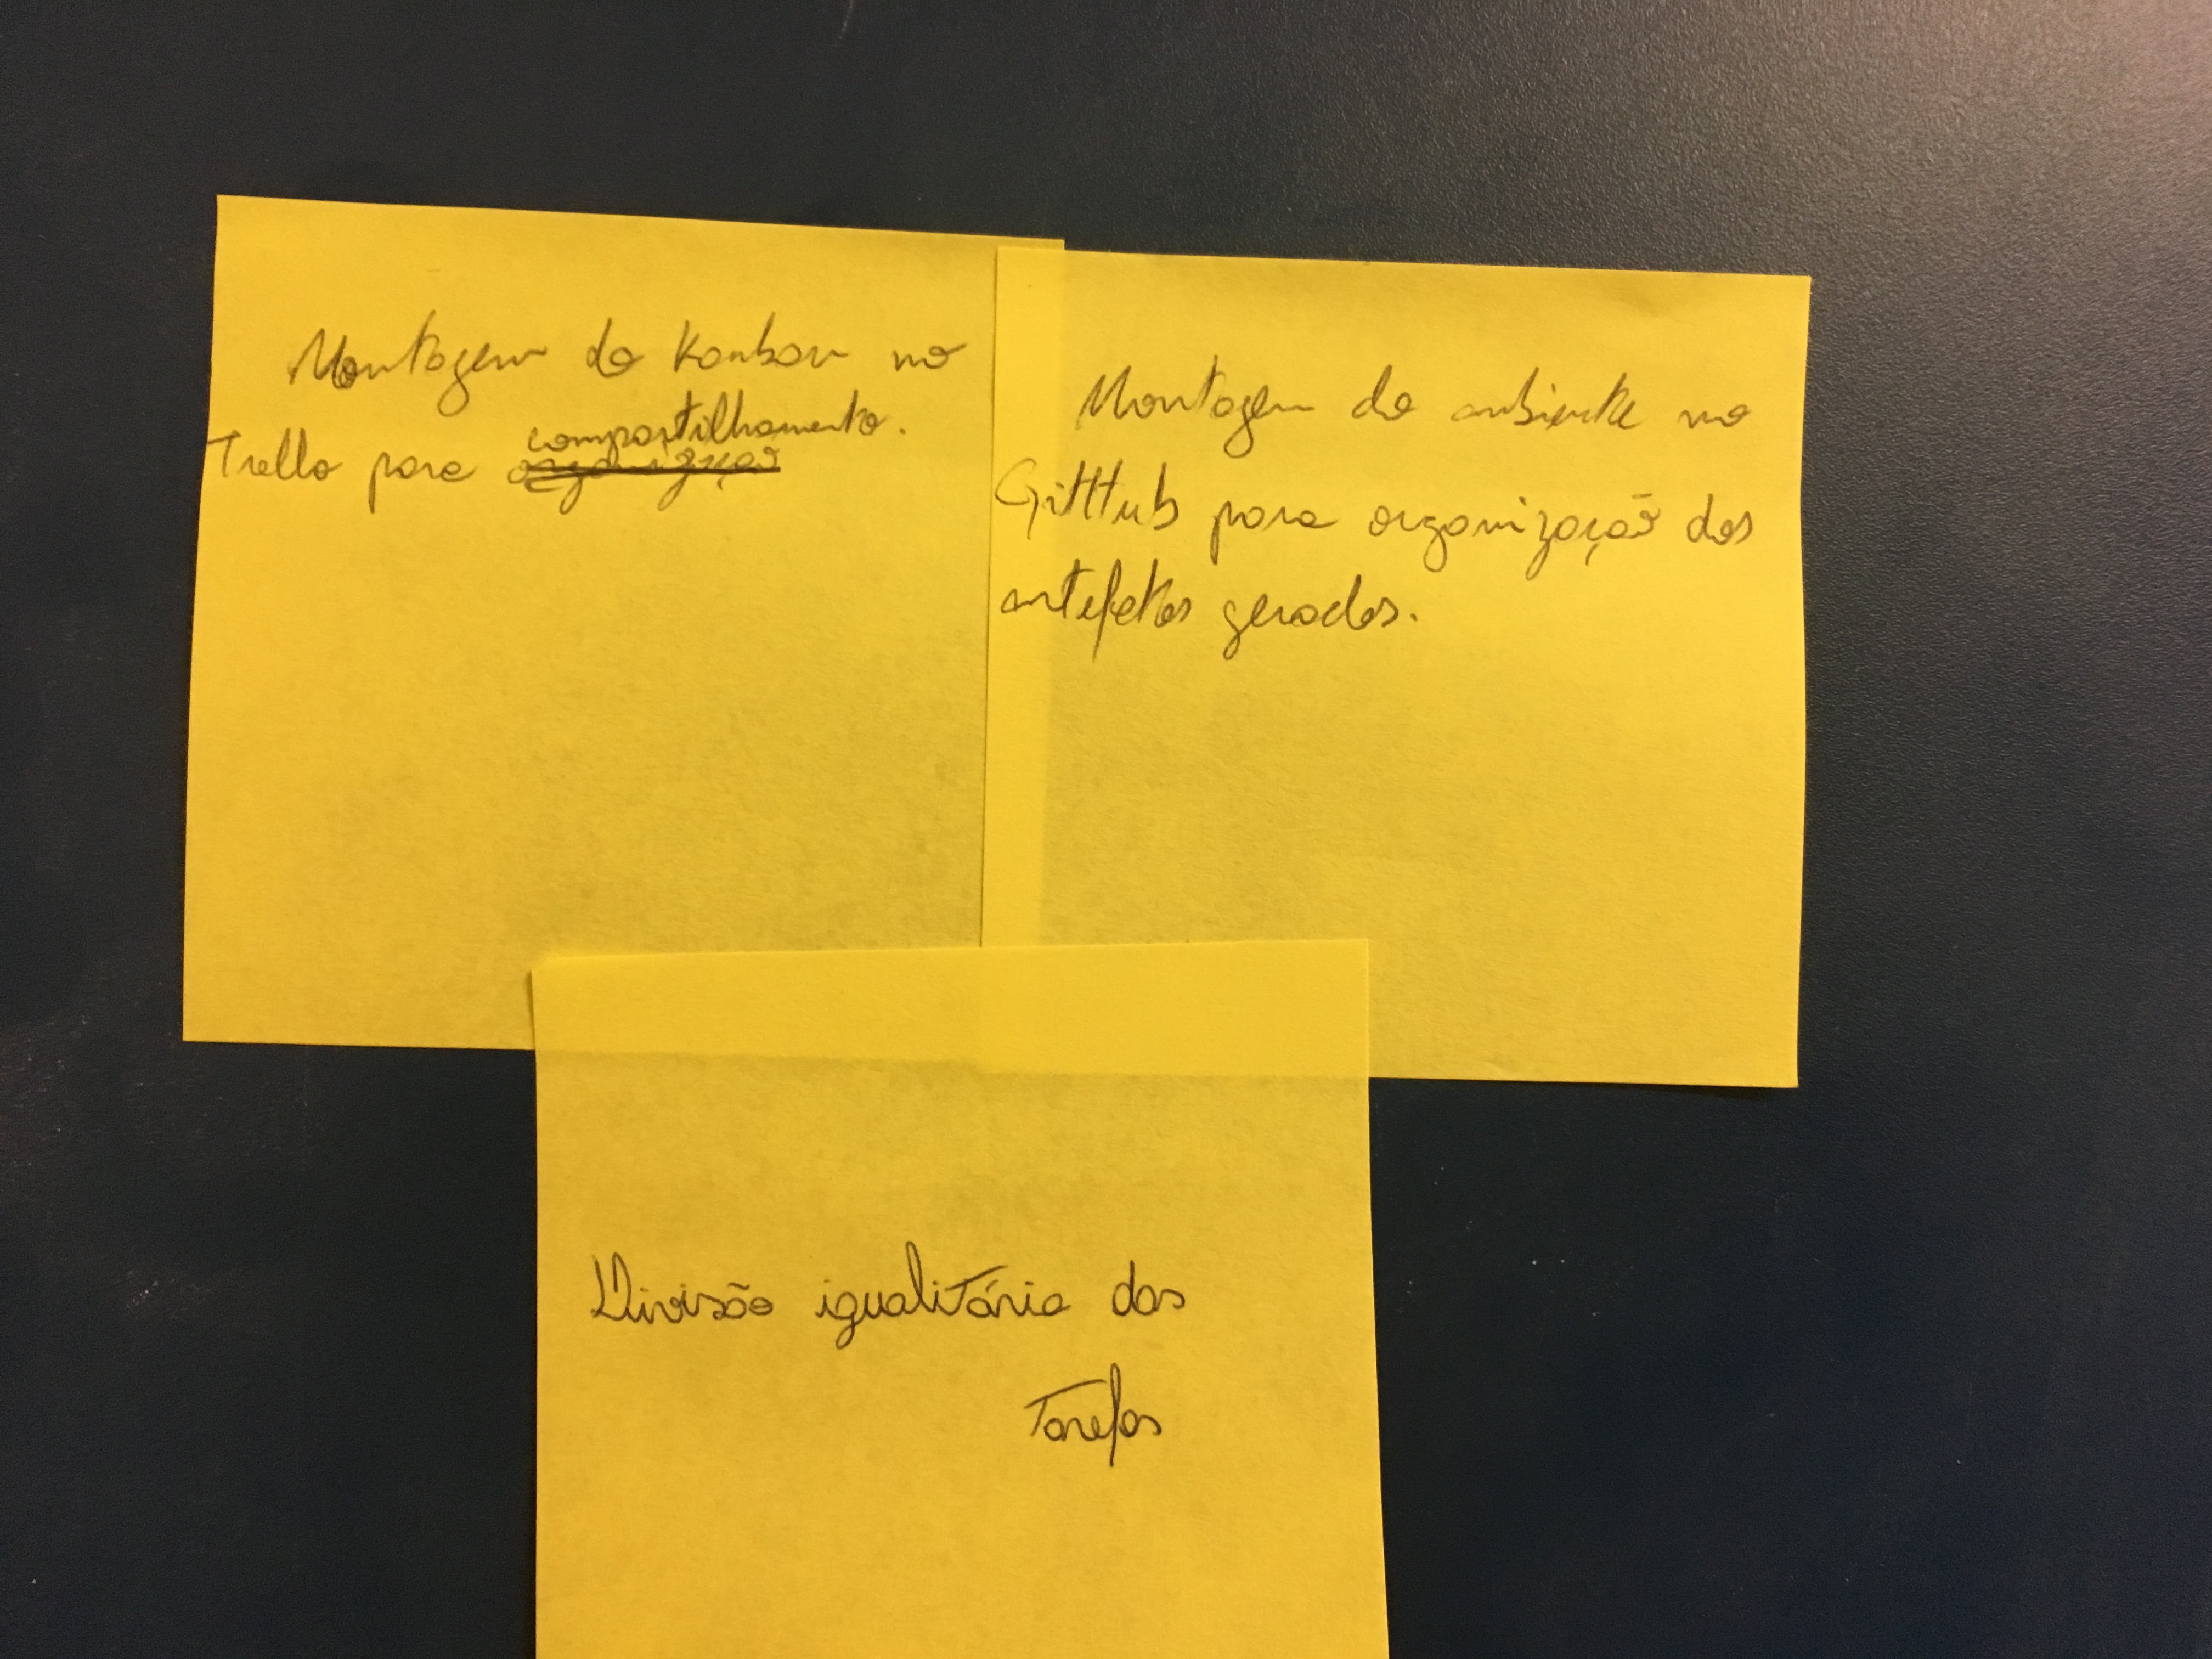 Montagem do Kanban no
Trello para organização compartilhamento.
Montagem do ambiente no
GitHub para organização dos
artefatos gerados.
Divisão igualitária das
Tarefas